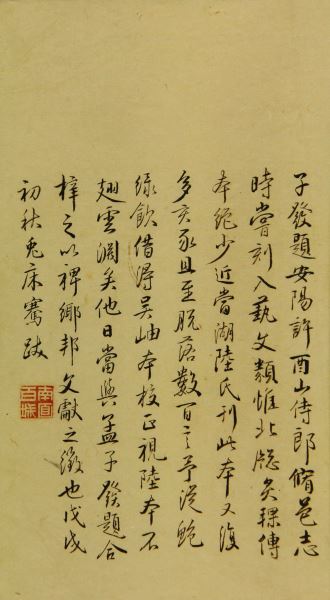 子發題安陽許酉山侍郎脩邑志
時嘗刻入藝文類惟北牕炙輠傳
本絶少近當湖陸氏刊此本又復
多亥豕且至脱落數百言予從鮑
緑飲借得吴岫本校正視陸本不
翅雲淵矣他日當與孟子發題合
梓之以裨鄉邦文獻之徵也戊戌
初秋兎床騫跋
南面百城